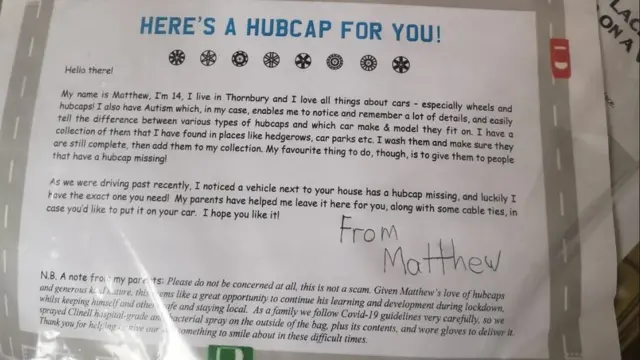 HERE'S A HUBCAP FOR YOU!
Hello there!
My name is Matthew, I'm 14, I live in Thornbury and I love all things about cars - especially wheels and
hubcaps! I also have Autism which, in my case, enables me to notice and remember a lot of details, and easily
tell the difference between various types of hubcaps and which car make & model they fit on. I have a
collection of them that I have found in places like hedgerows, car parks etc. I wash them and make sure they
are still complete, then add them to my collection. My favourite thing to do, though, is to give them to people
that have a hubcap missing!
As we were driving past recently, I noticed a vehicle next to your house has a hubcap missing, and luckily I
have the exact one you need! My parents have helped me leave it here for you, along with some cable ties, in
case you'd like to put it on your car. I hope you like it!
From
Matthew
N.B. A note from my parents: Please do not be concerned at all, this is not a scam. Given Matthew's love of hubcaps
and generous nature, this seems like a great opportunity to continue his learning and development during lockdown,
whilst keeping himself and others safe and staying local. As a family we follow Covid-19 guidelines very carefully, so we
sprayed Clinell hospital-grade antibacterial spray on the outside of the bag, plus its contents, and wore gloves to deliver it.
Thank you for helping give our something to smile about in these difficult times.
LAC
ON A